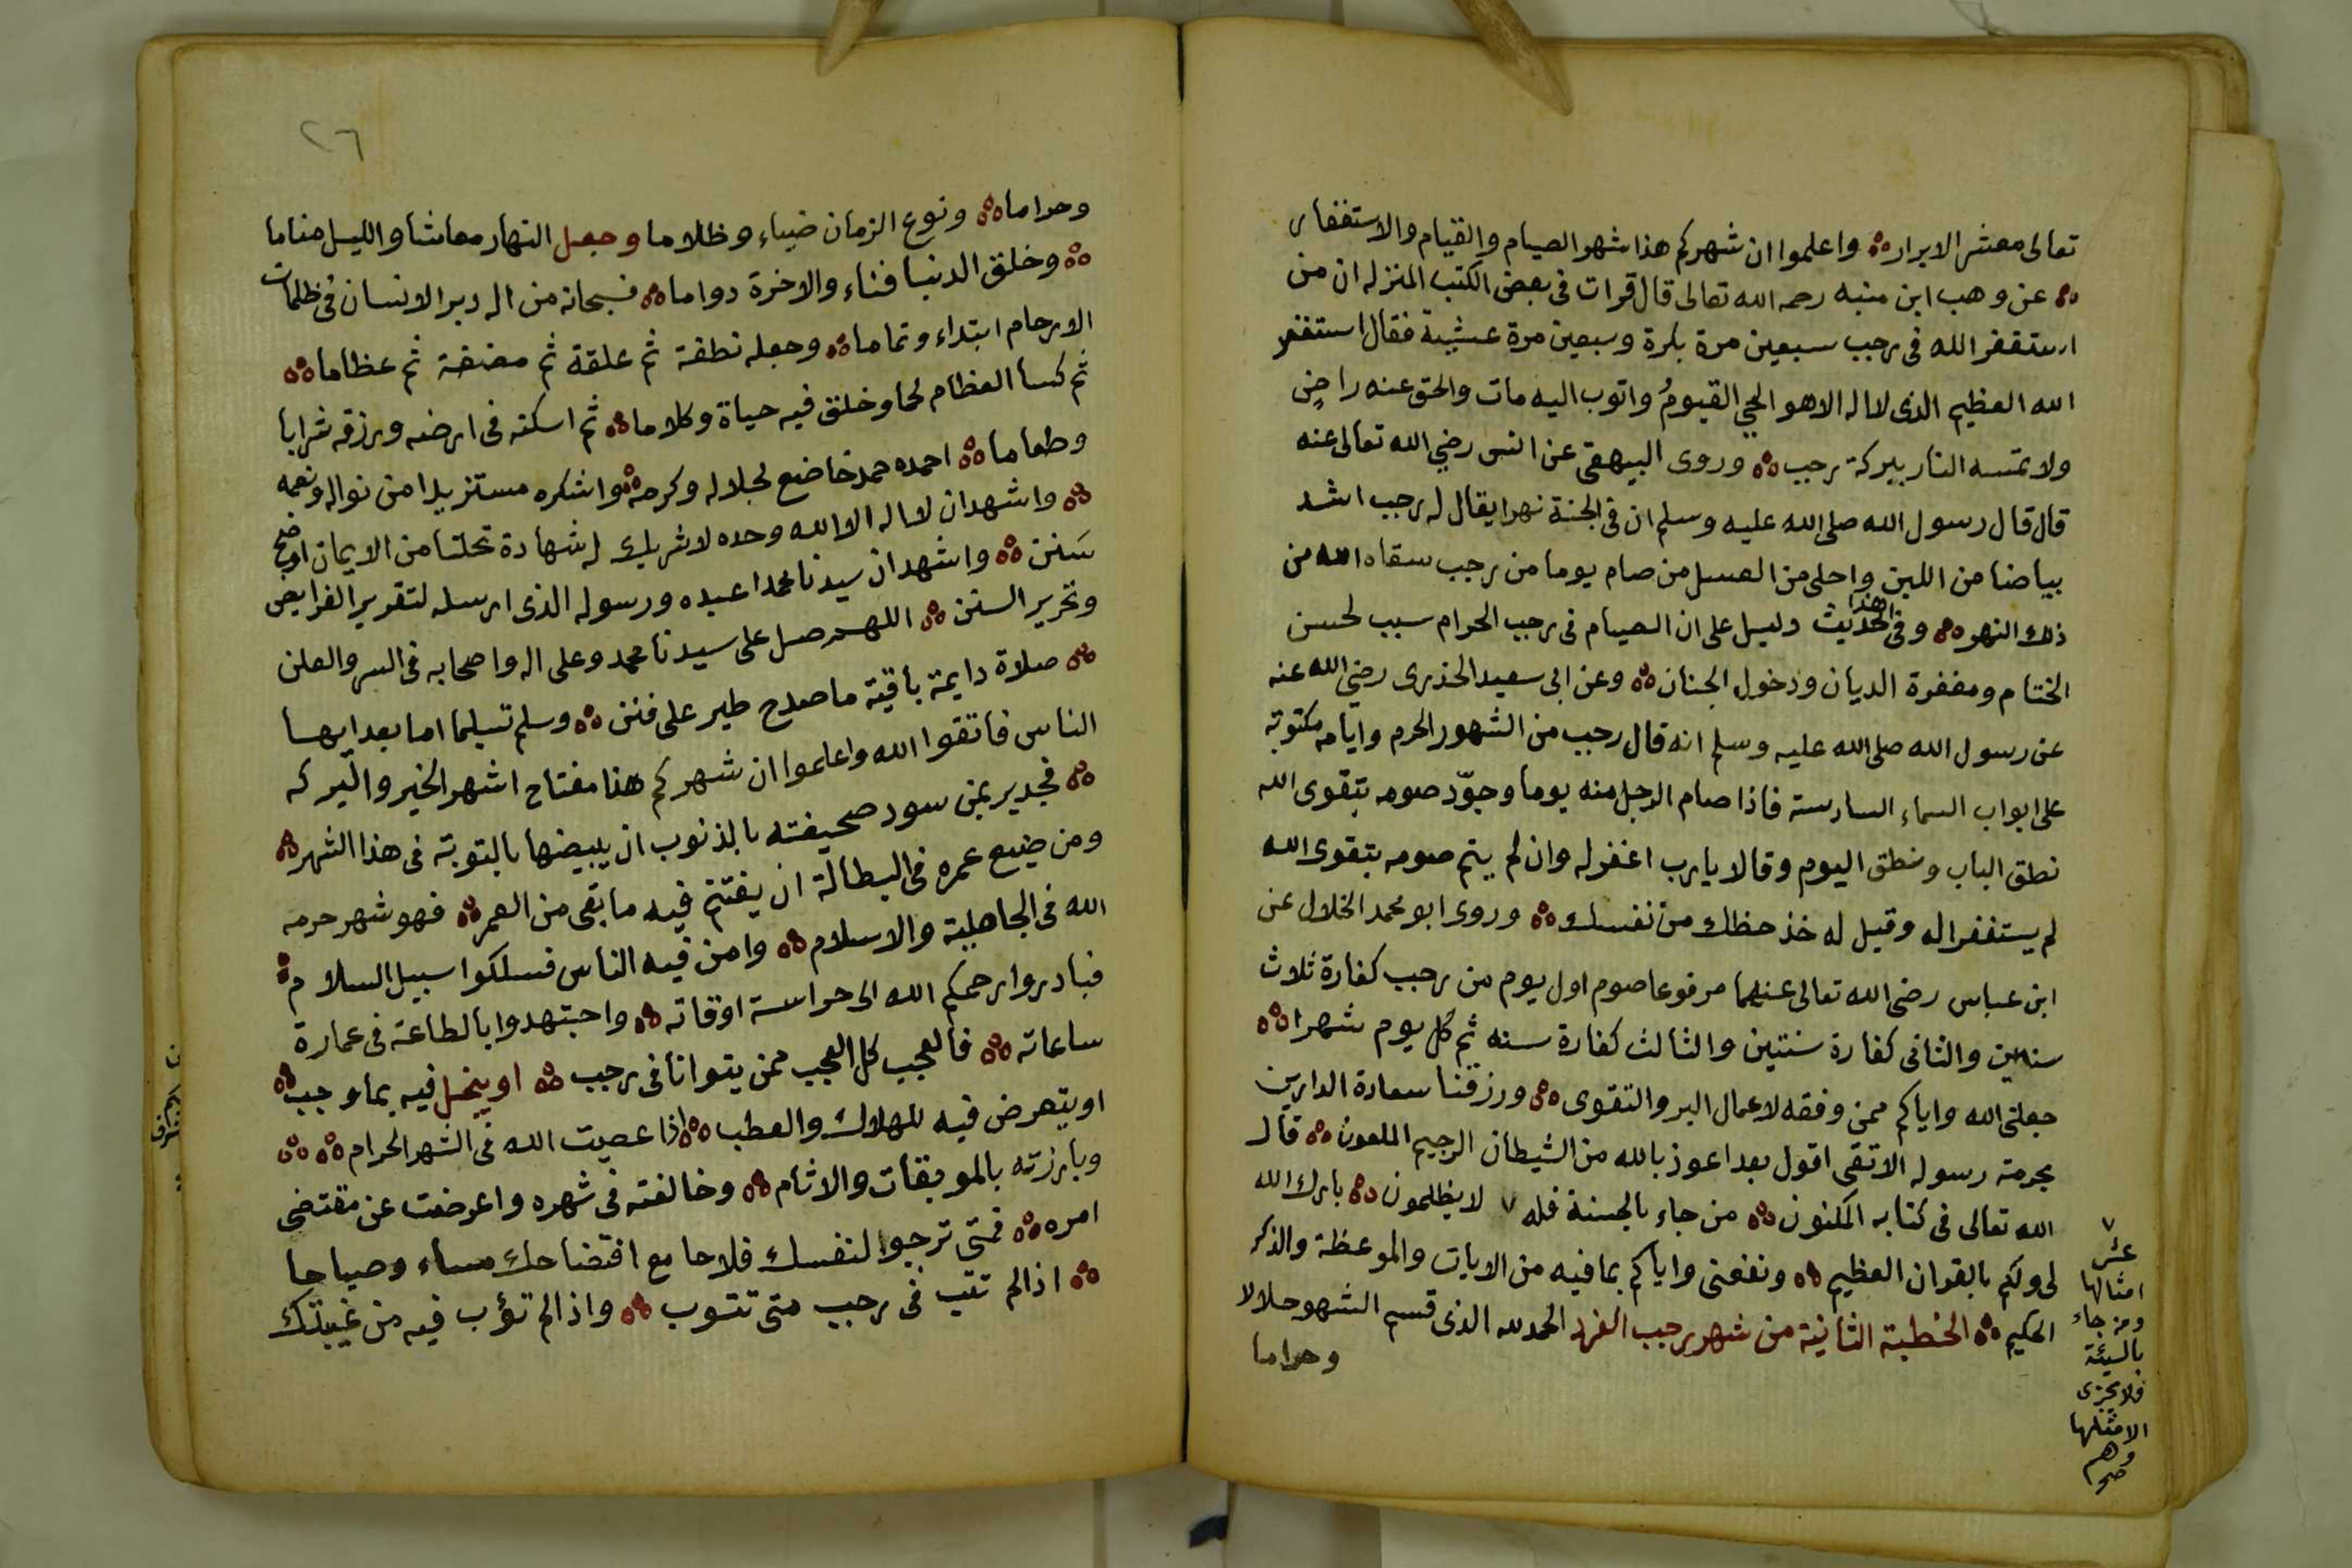 تعالى معشر الابرار ؞ واعلموا ان شهركم هذا شهر الصيام والقيام والاستغفار
؞ عن وهب ابن منبه رحمه الله تعالى قال قرات فى بعض الكتب المنزله ان من
استغفر الله فى رجب سبعين مرة بكرة وسبعين مرة عشية فقال استغفر
الله العظيم الذى لا اله الا هو الحي القيومُ واتوب اليه مات والحق عنه راضٍ
ولا تمسه النار ببركة رجب ؞ وروى البيهقى عن انس رضي الله تعالى عنه
قال قال رسول الله صلى الله عليه وسلم ان فى الجنة نهرا يقال له رجب اشد
بياضا من اللبن واحلى من العسل من صام يوما من رجب سقاه الله من
ذلك النهر ؞ وفى هذا الحديث دليل على ان الصيام فى رجب الحرام سبب لحسن
الختام ومغفرة الديان ودخول الجنان ؞ وعن ابى سعيد الخذرى رضي الله عنه
عن رسول الله صلى الله عليه وسلم انه قال رجب من الشهور الحرم وايامه مكتوبة
على ابواب السماء السادسة فاذا صام الرجل منه يوما وجوّد صومه بتقوى الله
نطق الباب ونطق اليوم وقالا يارب اغفر له وان لم يتم صومه بتقوى الله
لم يستغفرا له وقيل له خذ حظك من نفسك ؞ وروى ابو محمد الخلال عن
ابن عباس رضى الله تعالى عنهما مرفوعا صوم اول يوم من رجب كفارة ثلاث
سنين والثانى كفارة سنتين والثالث كفارة سنه ثم كل يوم شهرا ؞
جعلنى الله واياكم ممن وفقه لاعمال البر والتقوى ؞ ورزقنا سعادة الدارين
بحرمة رسوله الاتقى اقول بعد اعوذ بالله من الشيطان الرجيم الملعون ؞ قال
الله تعالى فى كتابه المكنون ؞ من جاء بالحسنة فله ٧ لا يظلمون ؞ بارك الله
لى ولكم بالقران العظيم ؞ ونفعنى واياكم بما فيه من الايات والموعظة والذكر
الحكيم ؞ الخطبة الثانية من شهر رجب الفرد الحمد لله الذى قسم الشهور حلالا
وحراما
٧
عشر
امثالها
ومن جاء
بالسيئة
فلا يجزى
الا مثلها
وهم
صح
٢٦
وحراما ؞ ونوع الزمان ضياء وظلاما وجعل النهار معاشا والليل مناما
؞ وخلق الدنيا فناء والاخرة دواما ؞ فسبحانه من اله دبر الانسان فى ظلمات
الارحام ابتداء وتماما ؞ وجعله نطفة ثم علقة ثم مضغة ثم عظاما ؞
ثم كسا العظام لحما وخلق فيه حياة وكلاما ؞ ثم اسكنه فى ارضه ورزقه شرابا
وطعاما ؞ احمده حمد خاضع لجلاله وكرمه ؞ واشكره مستزيدا من نواله ونعمه
؞ واشهد ان لا اله الا الله وحده لا شريك له شهادة تحلنا من الايمان اوضح
سَنن ؞ واشهد ان سيدنا محمدا عبده ورسوله الذى ارسله لتقرير الفرايض
وتحرير السنن ؞ اللهم صل على سيدنا محمد وعلى اله واصحابه فى السر والعلن
؞ صلاة دايمة باقية ما صدح طير على فنن ؞ وسلم تسليما اما بعد ايها
الناس فاتقوا الله واعلموا ان شهركم هذا مفتاح اشهر الخير والبركه
؞ فجدير بمن سود صحيفته بالذنوب ان يبيضها بالتوبة فى هذا الشهر ؞
ومن ضيع عمره فى البطالة ان يغتنم فيه ما بقى من العمر ؞ فهو شهر حرمه
الله فى الجاهلية والاسلام ؞ وامن فيه الناس فسلكوا سبيل السلام ؞
فبادروا رحمكم الله الى حراسة اوقاته ؞ واجتهدوا بالطاعة فى عمارة
ساعاته ؞ فالعجب كل العجب ممن يتوانا فى رجب ؞ او يبخل فيه بما وجب ؞
او يتعرض فيه للهلاك والعطب ؞ اذا عصيت الله فى الشهر الحرام ؞ ؞
وبارزته بالموبقات والاثام ؞ وخالفته فى شهره واعرضت عن مقتضى
امره ؞ فمتى ترجوا لنفسك فلاحا مع افتضاحك مساء وصباحا
؞ اذا لم تتب فى رجب متى تتوب ؞ واذا لم تؤب فيه من غيبتك